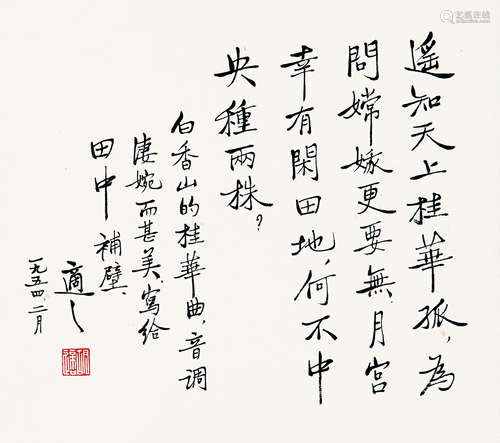 遥知天上桂華孤，為
問嫦娥更要無，月宮
幸有閑田地，何不中
央種兩株？
白香山的桂華曲，音调
淒婉而甚美寫给
田中 補壁
適之
一九五四、二月